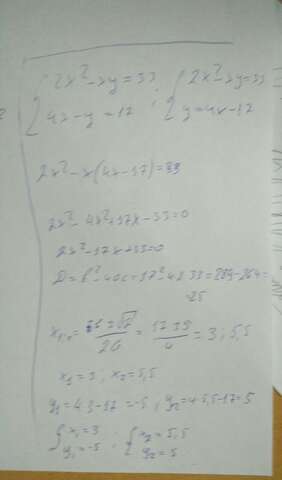 { 2x²-xy=33 ; { 2x²-xy=33
{ 4x-y=17 { y=4x-17
2x²-x(4x-17)=33
2x²-4x²+17x-33=0
2x²-17x+33=0
D=b²-4ac=17²-4·2·33=289-264=
25
x₁,₂= -b±√D / 2a = 17±5 / 4 = 3; 5,5
x₁=3; x₂=5,5
y₁=4·3-17=-5; y₂=4·5,5-17=5
{ x₁=3 ; { x₂=5,5
{ y₁=-5 { y₂=5